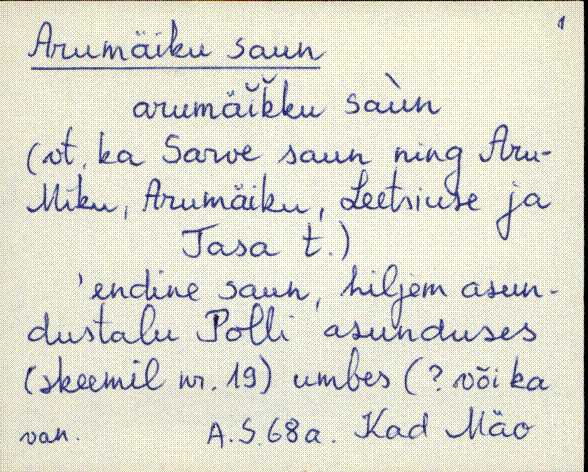 1
Arumäiku saun
arumäi̮k̆ku saùn
(vt. ka Sarve saun ning Aru-
Miku, Arumäiku, Leetsiuse ja
Tasa t.)
'endine saun, hiljem asun-
dustalu Polli asunduses
(skeemil nr. 19) umbes (? või ka
van. A.S. 68 a. Kad Mäo